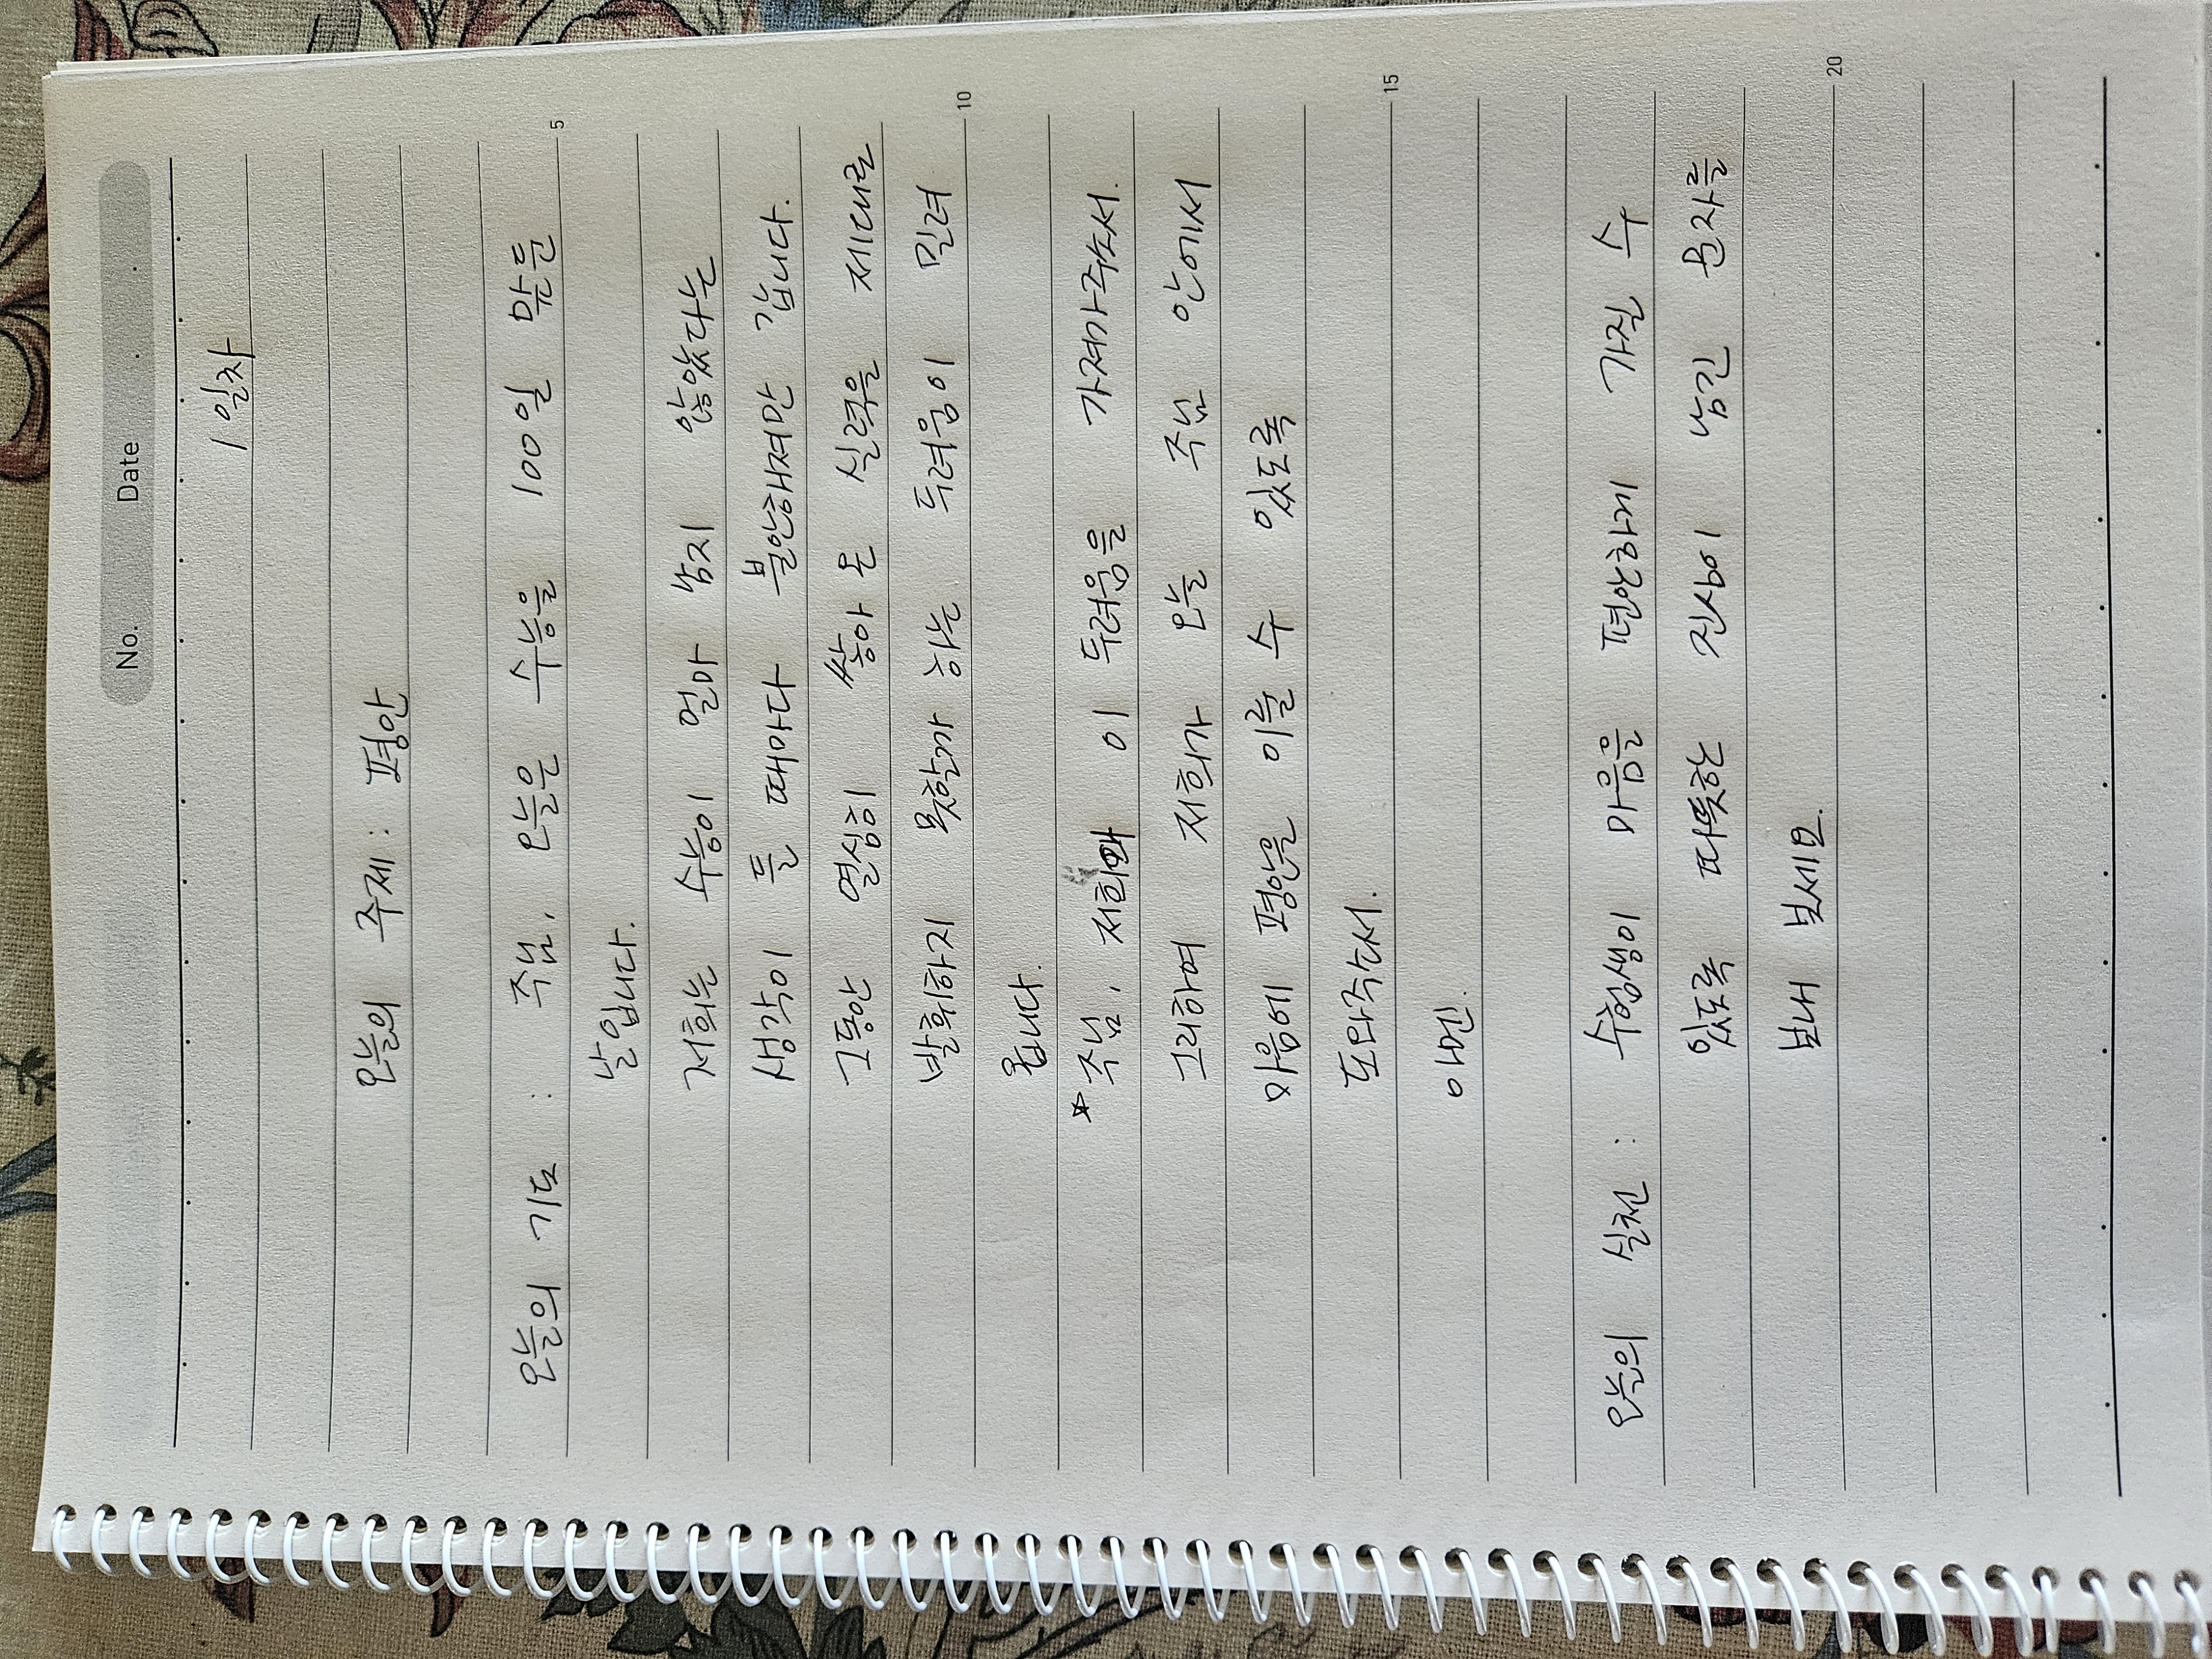 No. Date . .
1일차
오늘의 주제 : 평안
5
오늘의 기도 : 주님, 오늘은 수능을 100일 앞둔
날입니다.
저희는 수능이 얼마 남지 않았다는
생각이 들 때마다 불안해져만 갑니다.
그동안 열심히 쌓아 온 실력을 제대로
발휘하지 못할까 하는 두려움이 밀려
10
옵니다.
☆주님, 저희의 이 두려움을 가져가주소서.
그리하여 저희가 오늘 주님 안에서
마음에 평안을 이룰 수 있도록
도와주소서.
15
아멘.
오늘의 실천 : 수험생이 마음을 편안하게 가질 수
있도록 따뜻한 진심이 담긴 문자를
보내 보세요.
20